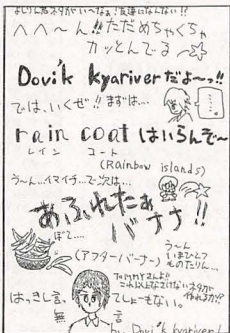 へへ～ん!!ただめちゃくちゃ
カッとんでる～
Dovi'k kyariverだよ～っ!!
では、いくぜ!!まずは…
rain coat はいらんぞ～
レイン コート
(Rainbow islands)
う～ん…イマイチ…で次は…
あふれたぁ
バナナ!!
ぼて…
(アフターバーナー)
う～ん
いまひとつ
ものたりん…
TOMMYさんよ!!
これ以上なさけないネタが
作れるか!?
はっきし言って
しょーもない。
無言
by Dovi'k kyariver!